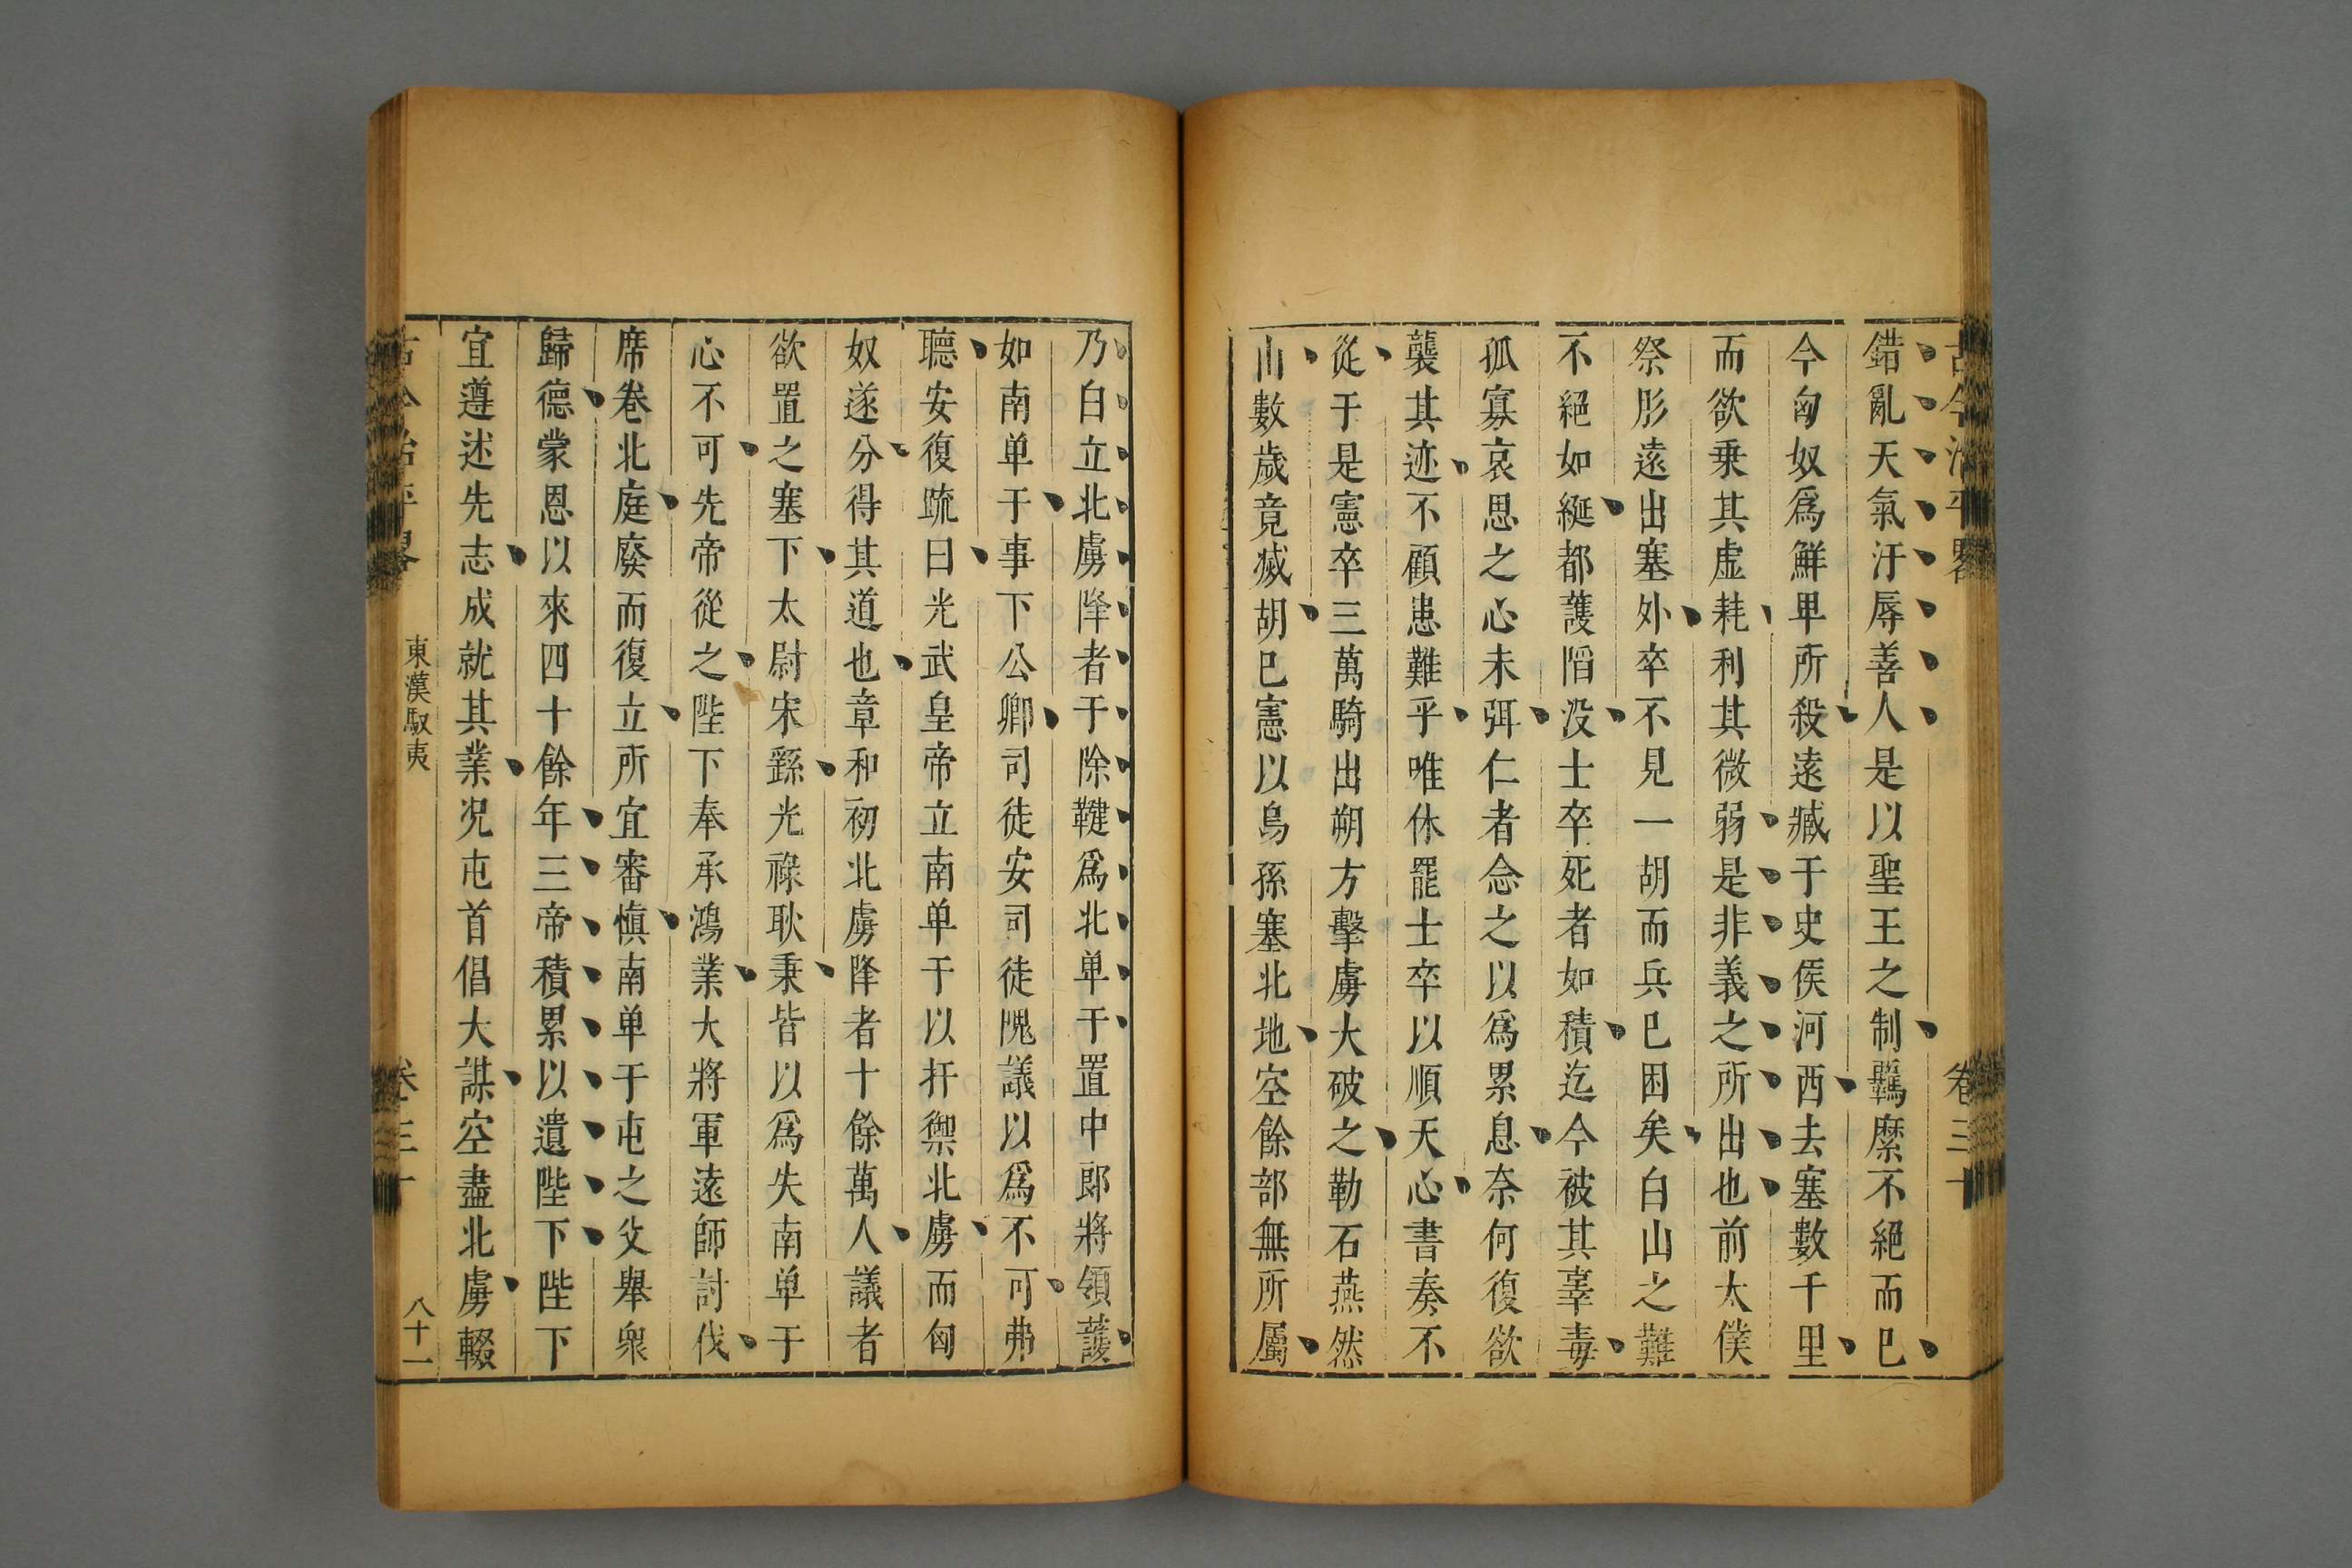 古今治平畧
卷三十
錯亂天氣汙辱善人是以聖王之制羈縻不絕而已
今匈奴爲鮮卑所殺遠臧于史侯河西去塞數千里
而欲乗其虚耗利其微弱是非義之所出也前太僕
祭肜遠出塞外卒不見一胡而兵已困矣白山之難
不絕如綖都護䧟没士卒死者如積迄今被其辜毒
孤寡哀思之心未弭仁者念之以爲累息奈何復欲
襲其迹不顧患難乎唯休罷士卒以順天心書奏不
從于是憲卒三萬騎出朔方擊虜大破之勒石燕然
山數歲竟滅胡已憲以烏孫塞北地空餘部無所屬
乃白立北虜降者于除鞬爲北单于置中郎將領護
如南单于事下公卿司徒安司徒隗議以爲不可弗
聽安復疏曰光武皇帝立南单于以扞禦北虜而匈
奴遂分得其道也章和初北虜降者十餘萬人議者
欲置之塞下太尉宋繇光祿耿秉皆以爲失南单于
心不可先帝從之陛下奉承鴻業大將軍遠師討伐
席卷北庭廢而復立所宜審愼南单于屯之父舉衆
歸德蒙恩以來四十餘年三帝積累以遺陛下陛下
宜遵述先志成就其業况屯首倡大謀空盡北虜輟
古今治平畧
東漢馭夷
卷三十
八十一